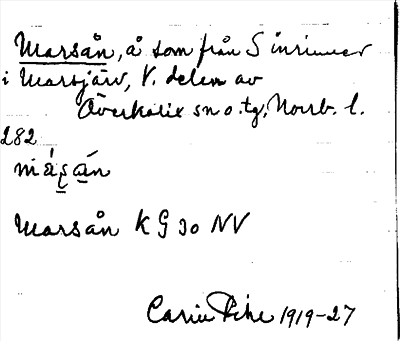 Marsån, å som från S inrinner
i Marsjärv, V. delen av
Överkalix sn o. tg, Norrb. l.
282
Marsån KG 30 NV
Carin Pihl 1919-27